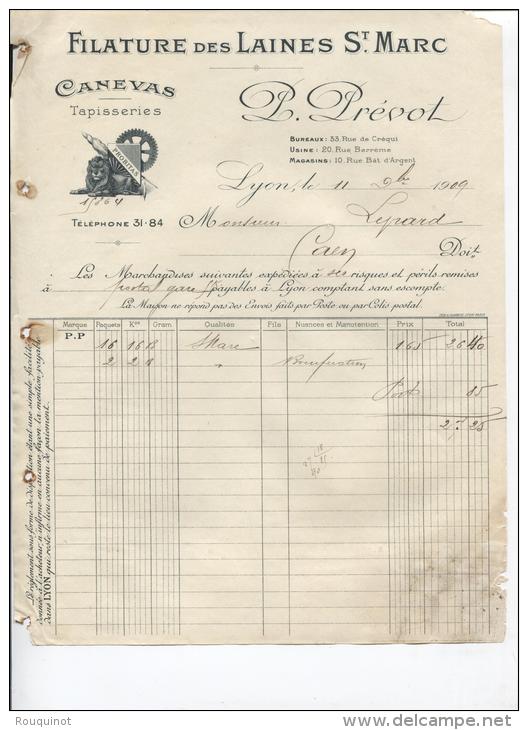 FILATURE DES LAINES ST. MARC
CANEVAS
Tapisseries
PROBITAS
P. Prévot
BUREAUX: 33, Rue de Créqui
USINE: 20, Rue Barrème
MAGASINS: 10, Rue Bât d'Argent
Lyon, le 11 9bre 1909
TÉLÉPHONE 31-84
Monsieur Lepard
Caen Doit
Les Marchandises suivantes expédiées à ses risques et périls remises
à postal gare payables à Lyon comptant sans escompte.
La Maison ne répond pas des Envois faits par Poste ou par Colis postal.
Marque Paquets Kos Gram Qualités Fils Nuances et Manutention Prix Total
P.P 16 16 St Marc 1 65 26 40
2 2 "
Port 85
27 25
Le règlement sous forme de disposition étant une simple facilité
donnée à l'acheteur, n'infirme en aucune façon la mention payable
dans LYON qui reste le lieu convenu de paiement.
Rouquinot
www.delcampe.net